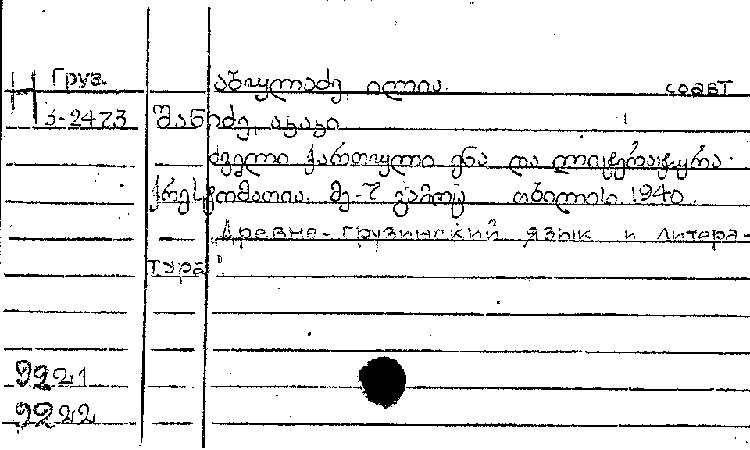 Груз. აბულაძე, ილია. соавт
Н 3-2473 შანიძე, აკაკი
ძველი ქართული ენა და ლიტერატურა.
ქრესტომათია. მე-7 გამოც. თბილისი. 1940.
Древне-грузинский язык и литера-
тура
9221
9222